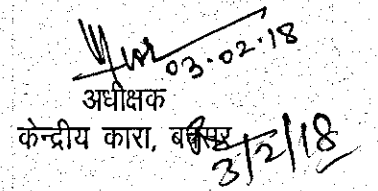 03.02.18
अधीक्षक
केन्द्रीय कारा, बक्सर
3/2/18